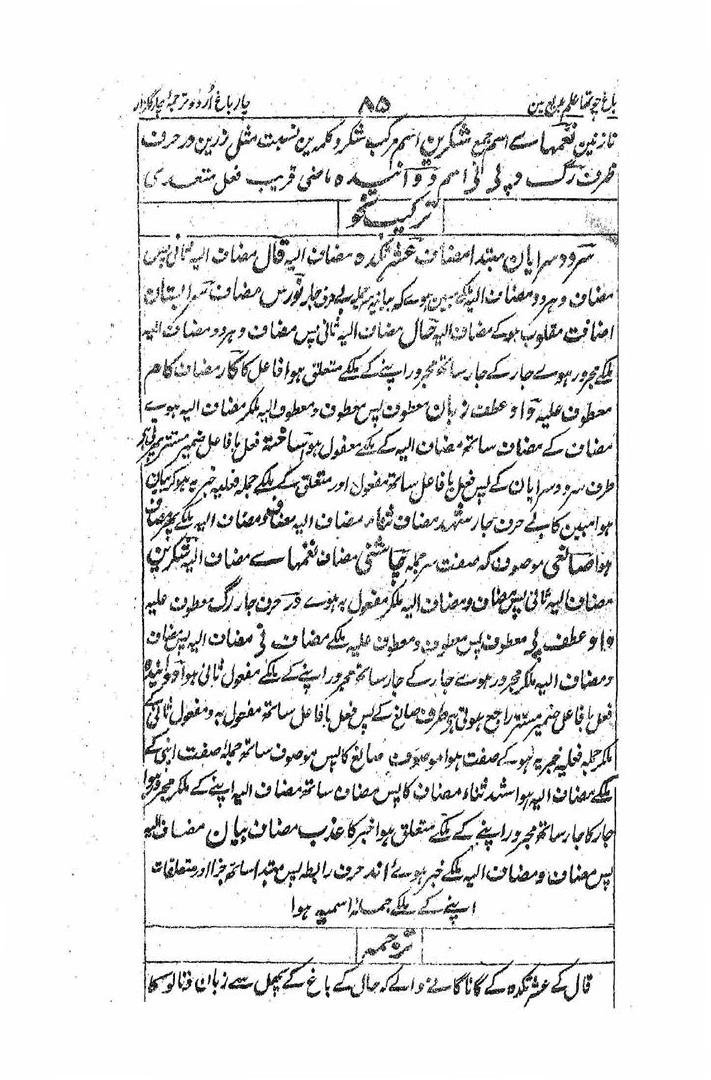 باغ چوتھا علم میں
۸۵
چار باغ اُردو ترجمۂ چار گلزار
نازنین نغمہاے اسم جمع شکرین اسم مرکب شکر و کلمہ ین نسبت مثل زرین در حرف
ظرف رگ و پے اسم دوانیدہ ماضی قریب فعل متعدی
ترکیب نحو
سرود سرایان مبتدا مضاف عشرتکدہ مضاف الیہ قال مضاف الیہ ثانی پس
مضاف و ہر دو مضاف الیہ ملکے مبین ہوے کہ بیانیہ جار نورس مضاف سرابستان
اضافت مقلوب ہوکے مضاف الیہ حال مضاف الیہ ثانی پس مضاف و ہر دو مضاف الیہ
ملکے مجرور ہوے جار کے جار ساتھ مجرور اپنے کے ملکے متعلق ہوا فاعل کا کار مضاف کام
معطوف علیہ واو عطف زبان معطوف پس معطوف و معطوف الیہ ملکر مضاف الیہ ہوے
مضاف کے مضاف ساتھ مضاف الیہ کے ملکے مفعول ہوا ساختہ فعل با فاعل ضمیر مستتر
طرف سرود سرایان کے پس فعل با فاعل ساتھ مفعول اور متعلق کے ملکے جملہ فعلیہ خبریہ ہوکر بیان
ہوا مبین کا بے حرف جار شہد مضاف ثناء مضاف الیہ مضاف و مضاف الیہ ملکے
ہوا صانعی موصوف کہ صفت سر جملہ چاشنی مضاف نغمہاے مضاف الیہ شکرین
مضاف الیہ ثانی پس مضاف و مضاف الیہ ملکر مفعول بہ ہوے در حرف جار رگ معطوف علیہ
واو عطف پے معطوف پس معطوف و معطوف علیہ ملکے مضاف نے مضاف الیہ پس مضاف
و مضاف الیہ ملکر مجرور ہوے جار کے جار ساتھ مجرور اپنے کے ملکے مفعول ثانی ہوا دوانیدہ
فعل با فاعل ضمیر مستتر راجع ہوتی ہو طرف صانع کے پس فعل با فاعل ساتھ مفعول بہ و مفعول ثانی کے
ملکر جملہ فعلیہ خبریہ ہو کے صفت ہوا موصوف صانع کا پس موصوف ساتھ جملہ صفت اپنی کے
ملکے مضاف الیہ ہوا شہد ثناء مضاف کا پس مضاف ساتھ مضاف الیہ اپنے کے ملکر مجرور ہوا
جار کا جار ساتھ مجرور اپنے کے ملکے متعلق ہوا خبر کا عذب مضاف بیان مضاف الیہ
پس مضاف و مضاف الیہ ملکے خبر ہوئے اند حرف رابطہ پس مبتدا ساتھ جزا اور متعلقات
اپنے کے ملکے جملہ اسمیہ ہوا
ترجمہ
قال کے عشرتکدہ کے گانا گانے والے کہ حال کے باغ کے پھل سے زبان و تالو کا